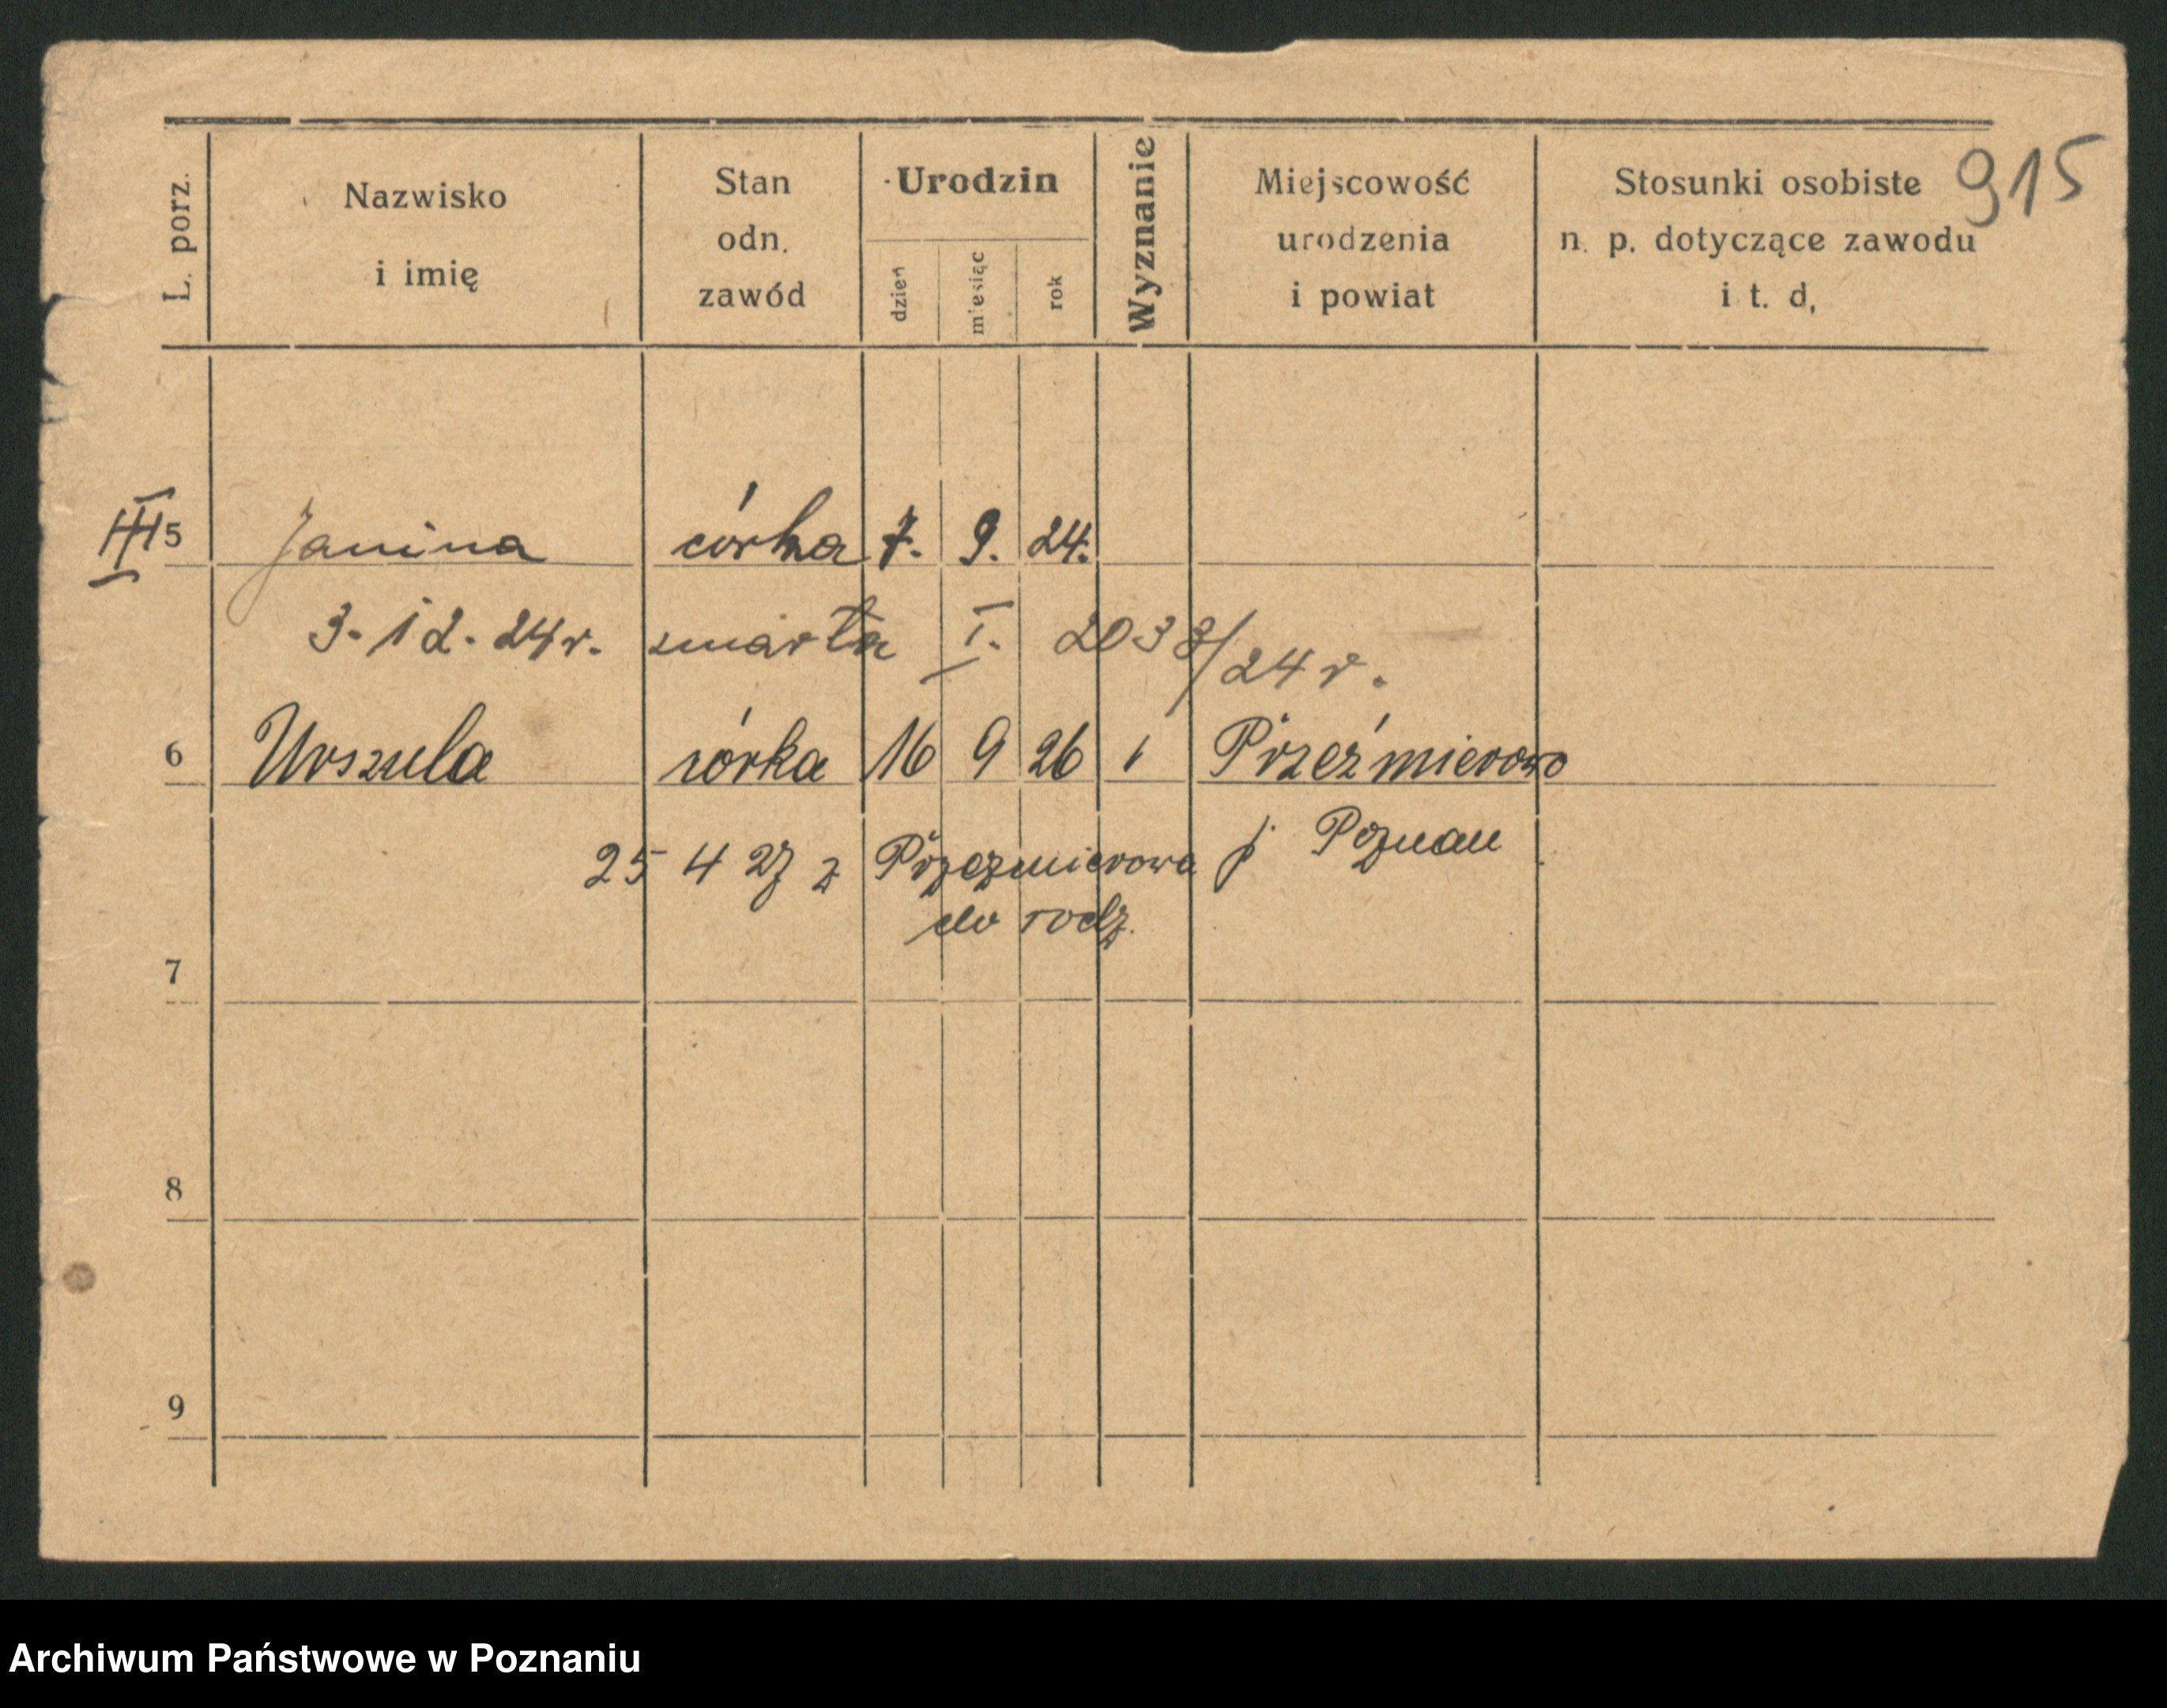 915
L. porz.
Nazwisko
i imię
Stan
odn.
zawód
Urodzin
dzień
miesiąc
rok
Wyznanie
Miejscowość
urodzenia
i powiat
Stosunki osobiste
n. p. dotyczące zawodu
i t. d.
5 Janina córka 7. 9. 24.
3.12.24r. zmarła I. 2038/24 r.
6 Urszula córka 16 9 26 Przeźmierowo
p. Poznań
25 4 27 z Przezmierowa
do rodz.
7
8
9
Archiwum Państwowe w Poznaniu